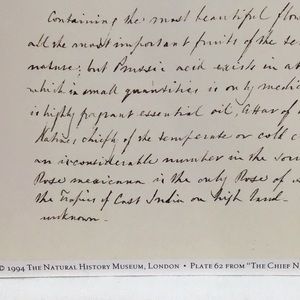 Containing the most beautiful flow
all the most important fruits of the te
nature; but Prussic acid exists in a
which in small quantities is only medic
is highly fragrant essential oil, Attar of
Natives chiefly of the temperate or cold c
an inconsiderable number in the
Rosa mexicana is the only Rose of
the Tropics of East India on high land
unknown.
© 1994 The Natural History Museum, London • Plate 62 from "The Chief N